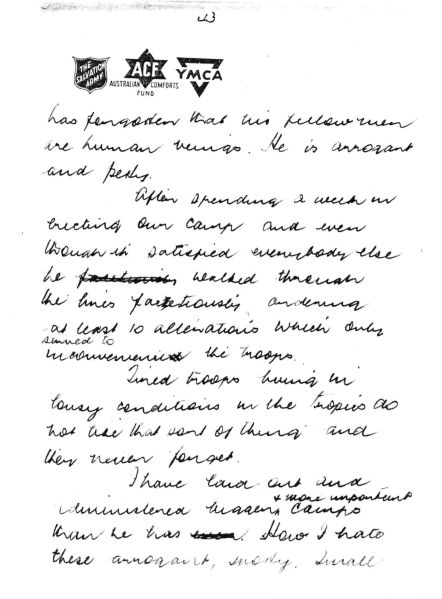 43
THE SALVATION ARMY
ACF
AUSTRALIAN COMFORTS FUND
YMCA
has forgotten that his fellow men
are human beings. He is arrogant
and petty.
After spending a week in
erecting our camp and even
though it satisfied everybody else
he walked through
the lines facetiously ordering
at least 10 alterations which only
served to
inconvenience the troops.
Tired troops living in
lousy conditions in the tropics do
not like that sort of thing and
they never forget.
I have laid out and
& more important
administered bigger camps
than he has . How I hate
these arrogant, snooty, small